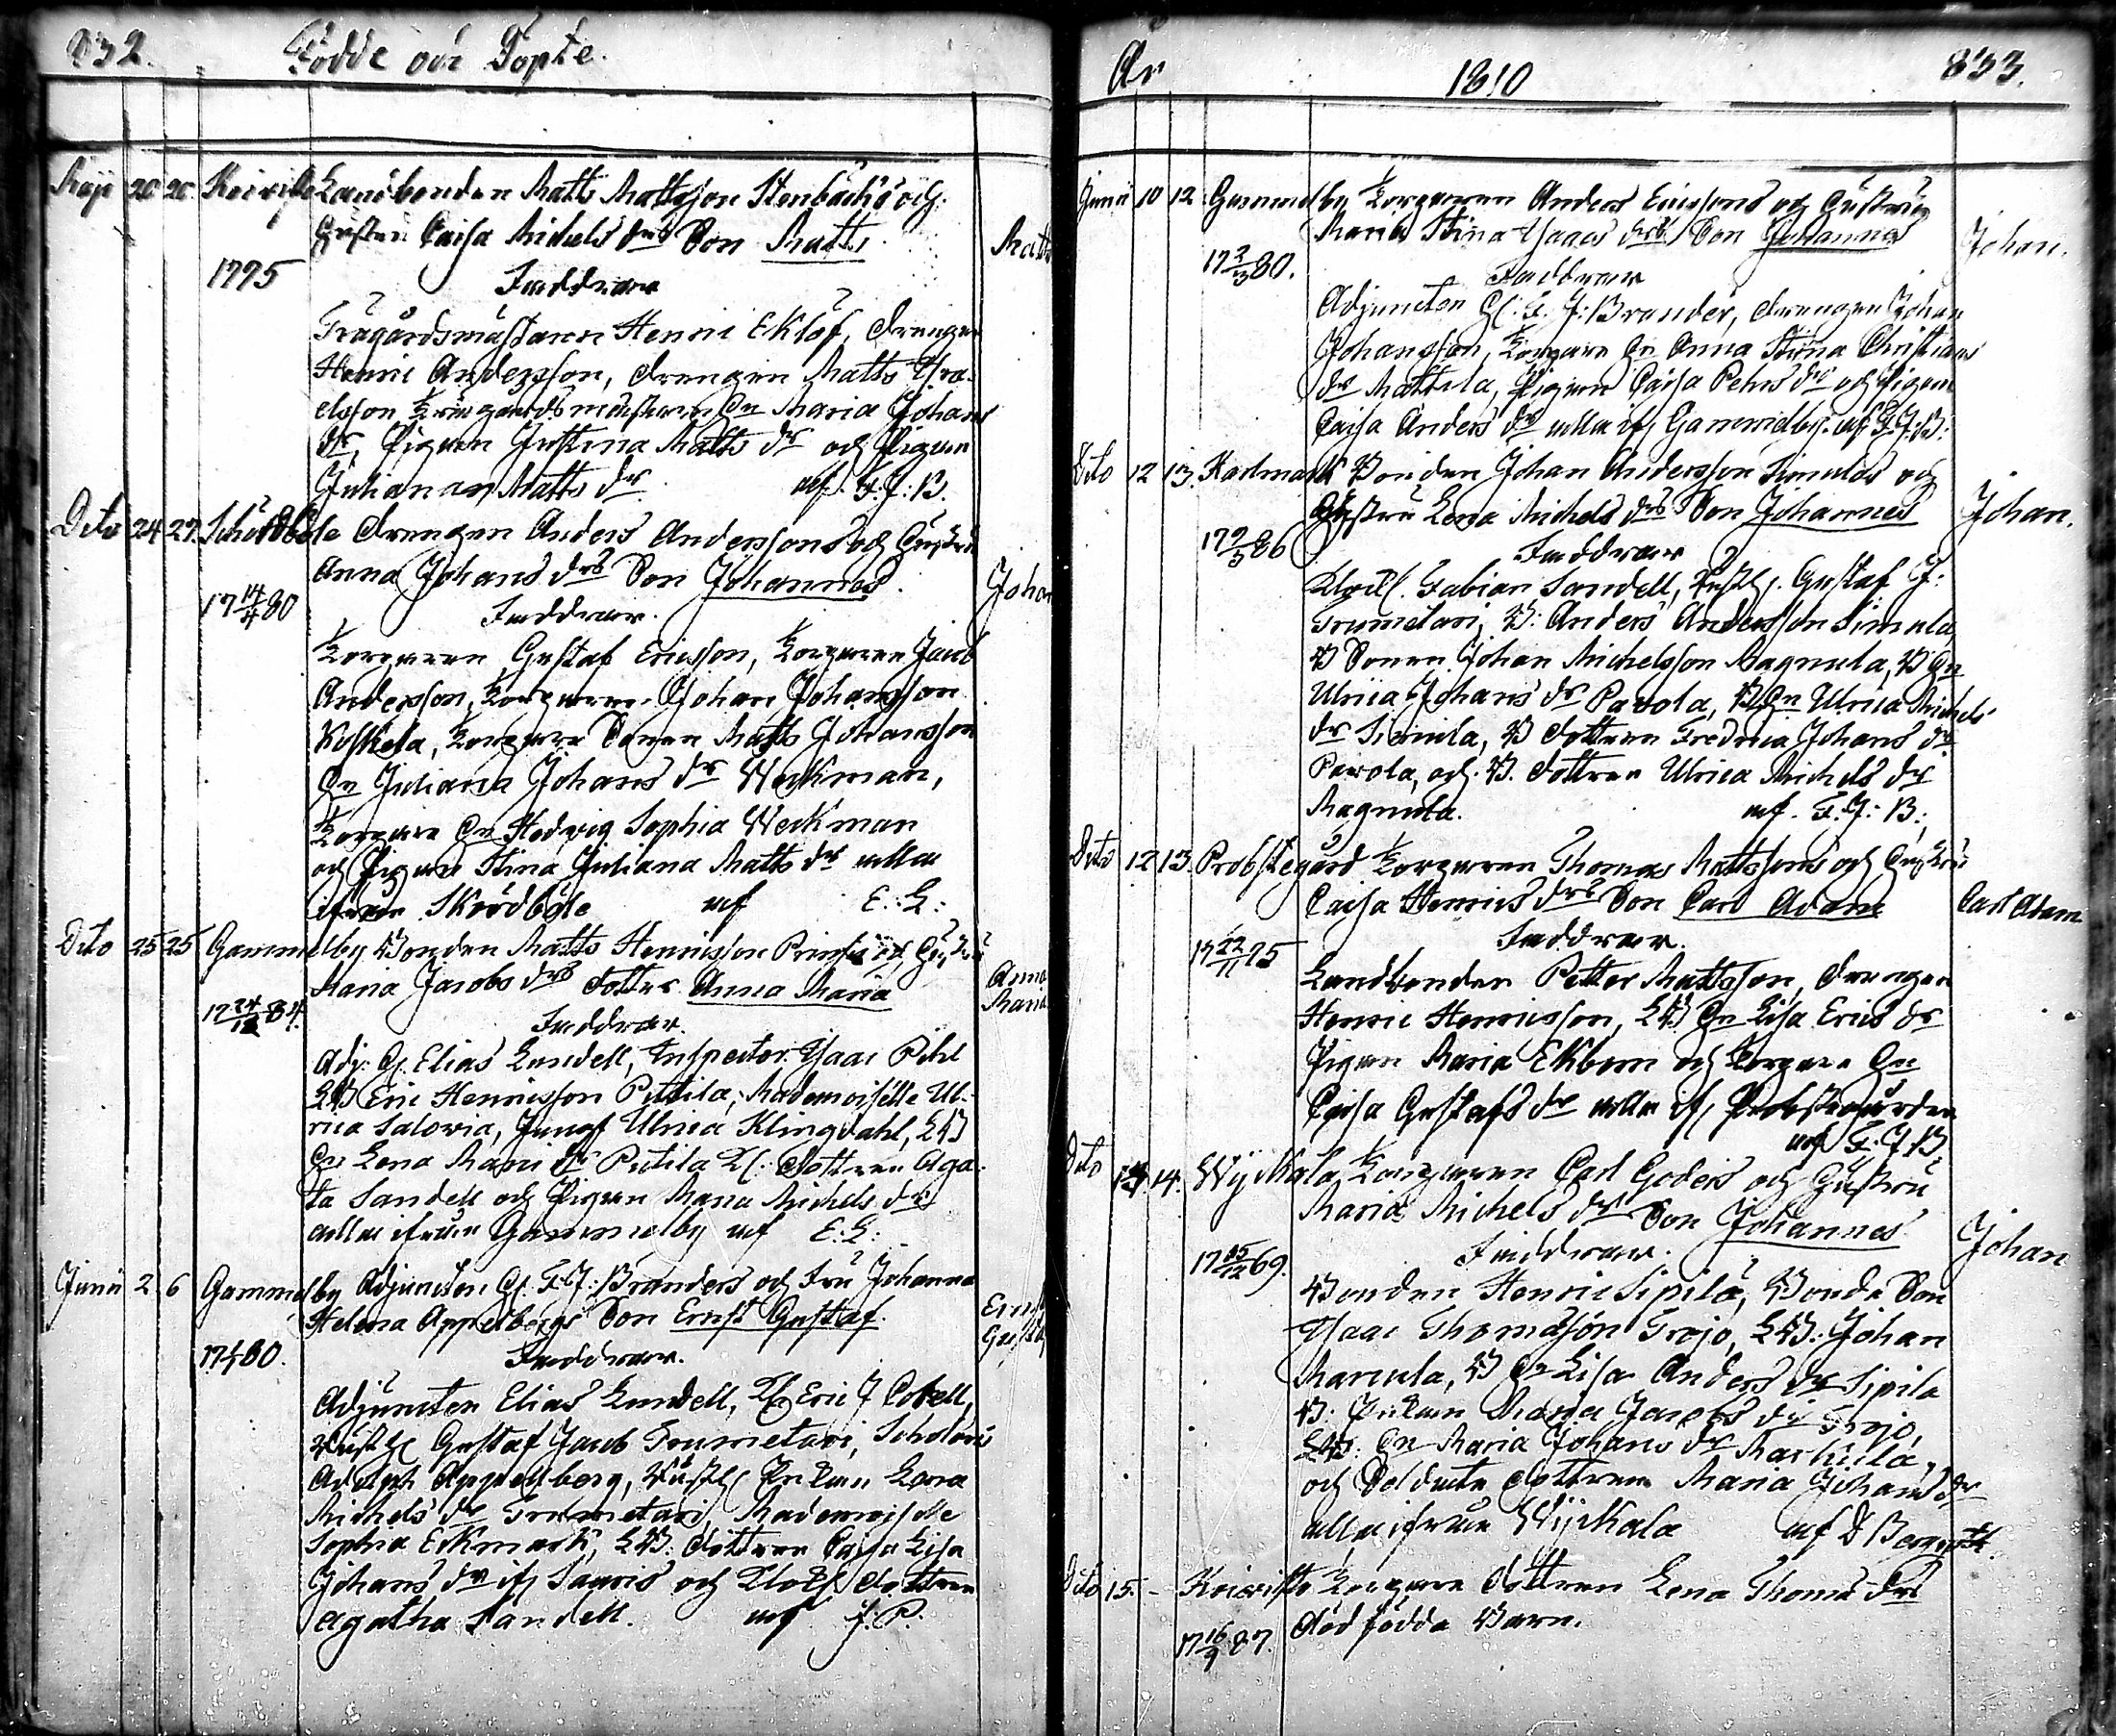 832. Födde och Döpte.
Maji 20 20 Koivisto Landbonden Matts Mattsson Stenbacks och
Hustru Caisa Michels drs Son Matts. Matts
1775 Faddrar
Trägårdsmästaren Henric Eklöf, drengen
Henric Andersson, drengen Matts Isra-
elsson, trägårdsmästaren Hu Maria Johans
dr, Pigan Justina Matts dr och Pigan
Juliana Matts dr af F. J: B.
Dito 24 27 Skördböle drengen Anders Anderssons och Hustru
Anna Johans drs Son Johannes. Johan
17 14/4 80 Faddrar.
Torparen Gustaf Ericsson, Torparen Jacob
Andersson, Torparen Johan Johansson
Koskela, Torpare Sonen Matts Johansson
Hu Juliana Johans dr Weckman,
Torpare Hu Hedvig Sophia Weckman
och Pigan Stina Juliana Matts dr alla
ifrån Skördböle af E: L:
Dito 25 25 Gammelby Bonden Matts Henricsson Prinsis och Hustru
Maria Jacobs drs dotter Anna Maria Anna Maria
17 24/12 84. Faddrar.
Adj: H. Elias Lundell, Inspector Isaac Pihl
LB Eric Henricsson Puttila, Mademoiselle Ul-
rica Salovia, Jungf Ulrica Klingdahl, LB
Hu Lena Maria dr Puttila Kl: dottren Aga-
ta Sandell och Pigan Maria Michels dr
alla ifrån Gammelby af E: L:
Junii 2 6 Gammelby Adjuncten H. F. J: Branders och Fru Johanna
Helena Appelbergs Son Ernst Gustaf. Ernst Gustaf
17 80. Faddrar.
Adjuncten Elias Lundell, Eric J
Gustaf Jacob Trumetari,
Adolph Appelberg, Lena
Michels dr Trumetari, Mademoiselle
Sophia Ekmark, LB: dottren Caisa Lisa
Johans dr ifr Sauris och dottren
Agatha Sandell. af J. P.
År 1810 833.
Junii 10 12 Gammelby Torparen Anders Ericssons och Hustrus
Maria Stina Isaacs drs Son Johannes Johan.
17 2/3 80. Faddrar
Adjuncten H. F. J: Brander, drengen Johan
Johansson, Torpare Hu Anna Stina Christians
dr Mattila, Pigan Caisa Pehrs dr och Pigan
Caisa Anders dr alla ifr Gammelby. af F. J: B:
Dito 12 13. Karlmark Bonden Johan Andersson Simulas och
Hustru Lena Michels drs Son Johannes Johan.
17 9/5 86 Faddrar
Fabian Sandell, Gustaf J:
Trumetari, B: Anders Andersson Simula
B Sonen Johan Michelsson Magnula, B Hu
Ulrica Johans dr Pavola, B Hu Ulrica Michels
dr Simula, B dottren Fredrica Johans dr
Pavola, och B. dottren Ulrica Michels dr
Magnula. af. F. J: B:
Dito 12 13. Probstegård Torparen Thomas Mattssons och Hustru
Caisa Henrics drs Son Carl Adam Carl Adam
17 22/11 75 Faddrar.
Landbonden Petter Mattsson, drengen
Henric Henricsson, LB Hu Lisa Erics dr
Pigan Maria Ekbom och Torpare Hu
Caisa Gustafs dr alla ifr Probstegården
af F. J. B.
Dito 14. Wijkala Torparen Carl Goders och Hustru
Maria Michels drs Son Johannes Johan
17 15/12 69. Faddrar.
Bonden Henric Sipilä, Bonde Son
Isaac Thomasson Trojo, LB: Johan
Marcula, B Hu Lisa Anders dr Sipila
B: Enkan Maria Jacobs dr Trojo,
LB: Hu Maria Johans dr Markula,
och Soldate dottren Maria Johans dr
alla ifrån Wijkala af D Bergroth.
Dito 15. - Koivisto Torpare dottren Lena Thoms drs
17 16/9 87. dödfödda Barn.